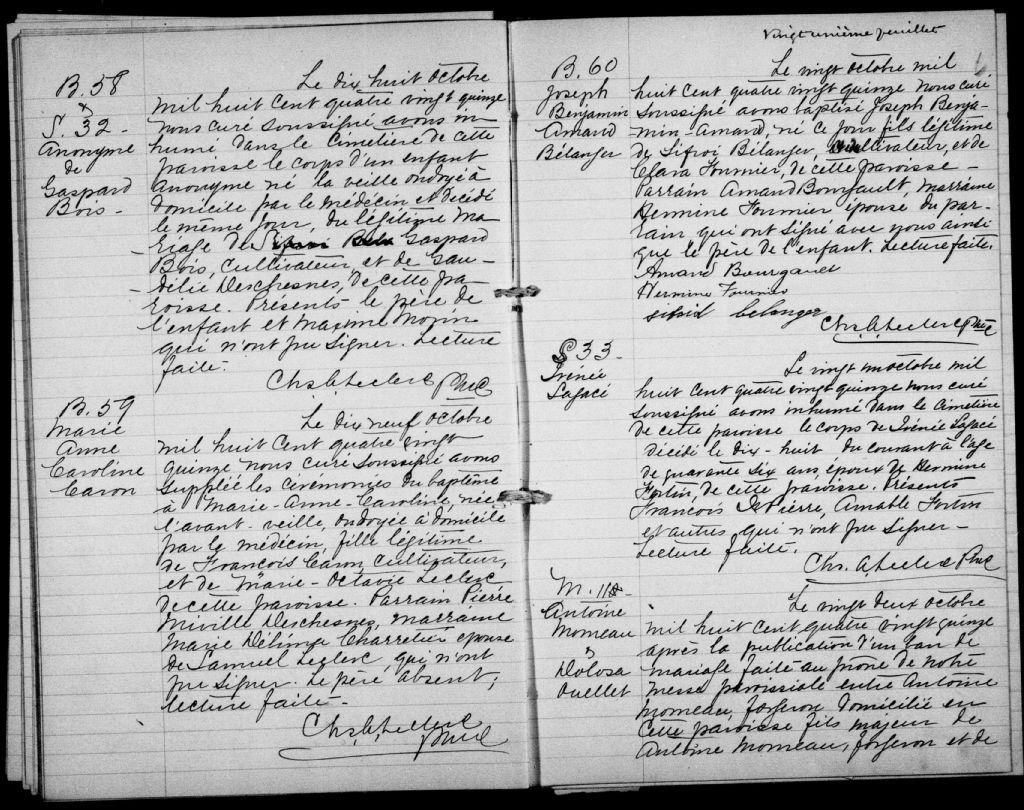 B. 58
&
S. 32 -
Anonyme
de
Gaspard
Bois -
Le dix huit octobre
mil huit cent quatre vingt quinze
nous curé soussigné avons in
humé dans le cimetière de cette
paroisse le corps d'un enfant
Anonyme né la veille ondoyé à
domicile par le médecin et décédé
le même jour, du légitime ma
riage de Gaspard
Bois, cultivateur, et de Gau-
délie Deschesnes, de cette pa-
roisse. Présents le père de
l'enfant et Maxime Morin
qui n'ont pu signer. Lecture
faite.
Chs. A. Leclerc Ptre C
B. 59
Marie
Anne
Caroline
Caron
Le dix neuf octobre
mil huit cent quatre vingt
quinze nous curé soussigné avons
suppléé les cérémonies du baptême
à Marie-Anne-Caroline, née
l'avant-veille, ondoyée à domicile
par le médecin, fille légitime
de François Caron, cultivateur,
et de Marie-Octavie Leclerc
de cette paroisse. Parrain Pierre
Miville Deschesnes, marraine
Marie Délima Charretier épouse
de Samuel Leclerc, qui n'ont
pu signer. Le père absent,
lecture faite -
Chs. A. Leclerc
Ptre C
Vingt unième feuillet
B. 60
Joseph
Benjamin
Amand
Bélanger
Le vingt octobre mil
huit cent quatre vingt quinze nous curé
soussigné avons baptisé Joseph Benja-
min-Amand, né ce jour fils légitime
de Sifroi Bélanger, cultivateur, et de
Clara Fournier, de cette paroisse -
Parrain Amand Bourgault, marraine
Hermine Fournier épouse du par-
rain qui ont signé avec nous ainsi
que le père de l'enfant. Lecture faite.
Amand Bourgault
Hermine Fournier
belanger
Chs. A. Leclerc Ptre C
S 33 -
Irénée
Lagacé
Le vingt un octobre mil
huit cent quatre vingt quinze nous curé
soussigné avons inhumé dans le cimetière
de cette paroisse le corps de Irénée Lagacé
décédé le dix-huit du courant à l'age
de quarante six ans époux de Hermine
Fortin, de cette paroisse. Présents
François St Pierre, Amable Fortin
et autres qui n'ont pu signer -
Lecture faite.
Chs. A. Leclerc Ptre C
M. 11
Antoine
Morneau
&
Dolosa
Ouellet
Le vingt deux octobre
mil huit cent quatre vingt quinze
après la publication d'un ban de
mariage faite au prone de notre
messe paroissiale entre Antoine
Morneau, forgeron domicilié en
cette paroisse fils majeur de
Antoine Morneau, forgeron et de